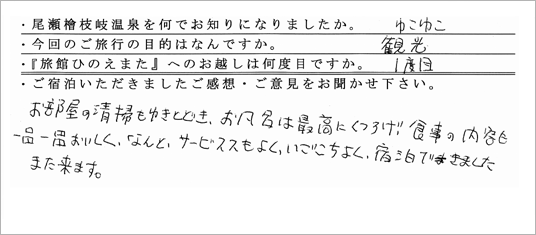 ・尾瀬檜枝岐温泉を何でお知りになりましたか。 ゆこゆこ
・今回のご旅行の目的はなんですか。 観光
・『旅館ひのえまた』へのお越しは何度目ですか。 1度目
・ご宿泊いただきましたご感想・ご意見をお聞かせ下さい。
お部屋の清掃もゆきとどき、お風呂は最高にくつろげ!食事の内容も
一品一品おいしく、なんと、サービスもよく、いごこちよく、宿泊できました
また来ます。